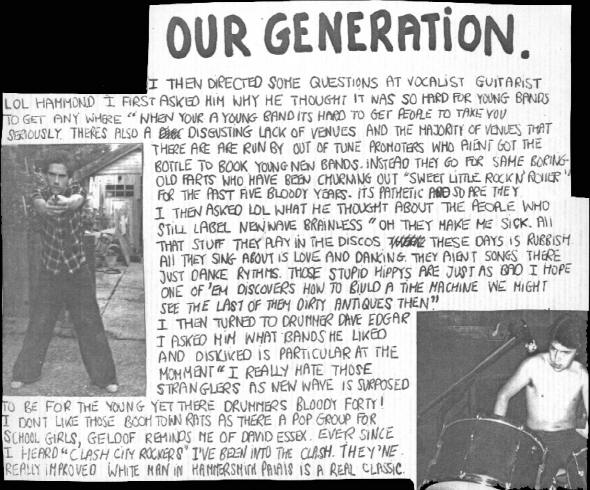 OUR GENERATION.
I THEN DIRECTED SOME QUESTIONS AT VOCALIST GUITARIST
LOL HAMMOND I FIRST ASKED HIM WHY HE THOUGHT IT WAS SO HARD FOR YOUNG BANDS
TO GET ANY WHERE "WHEN YOUR A YOUNG BAND ITS HARD TO GET PEOPLE TO TAKE YOU
SERIOUSLY. THERES ALSO A DISGUSTING LACK OF VENUES AND THE MAJORITY OF VENUES THAT
THERE ARE ARE RUN BY OUT OF TUNE PROMOTERS WHO AIENT GOT THE
BOTTLE TO BOOK YOUNG NEW BANDS. INSTEAD THEY GO FOR SAME BORING
OLD FARTS WHO HAVE BEEN CHURNING OUT "SWEET LITTLE ROCK N' ROLLER"
FOR THE PAST FIVE BLOODY YEARS. ITS PATHETIC AND SO ARE THEY.
I THEN ASKED LOL WHAT HE THOUGHT ABOUT THE PEOPLE WHO
STILL LABEL NEW WAVE BRAINLESS "OH THEY MAKE ME SICK. All
THAT STUFF THEY PLAY IN THE DISCOS THESE DAYS IS RUBBISH
All THEY SING ABOUT IS LOVE AND DANCING. THEY AIENT SONGS THERE
JUST DANCE RYTHMS. THOSE STUPID HIPPYS ARE JUST AS BAD I HOPE
ONE OF 'EM DISCOVERS HOW TO BIULD A TIME MACHINE WE MIGHT
SEE THE LAST OF THEM DIRTY ANTIQUES THEN"
I THEN TURNED TO DRUMMER DAVE EDGAR
I ASKED HIM WHAT BANDS HE LIKED
AND DISLIKED IS PARTICULAR AT THE
MOMMENT "I REALLY HATE THOSE
STRANGLERS AS NEW WAVE IS SUPOSED
TO BE FOR THE YOUNG YET THERE DRUMMERS BLOODY FORTY!
I DONT LIKE THOSE BOOMTOWN RATS AS THERE A POP GROUP FOR
SCHOOL GIRLS, GELDOF REMINDS ME OF DAVID ESSEX. EVER SINCE
I HEARD "CLASH CITY ROCKERS" I'VE BEEN INTO THE CLASH. THEY'VE
REALLY IMPROVED WHITE MAN IN HAMMERSMITH PALAIS IS A REAL CLASSIC.